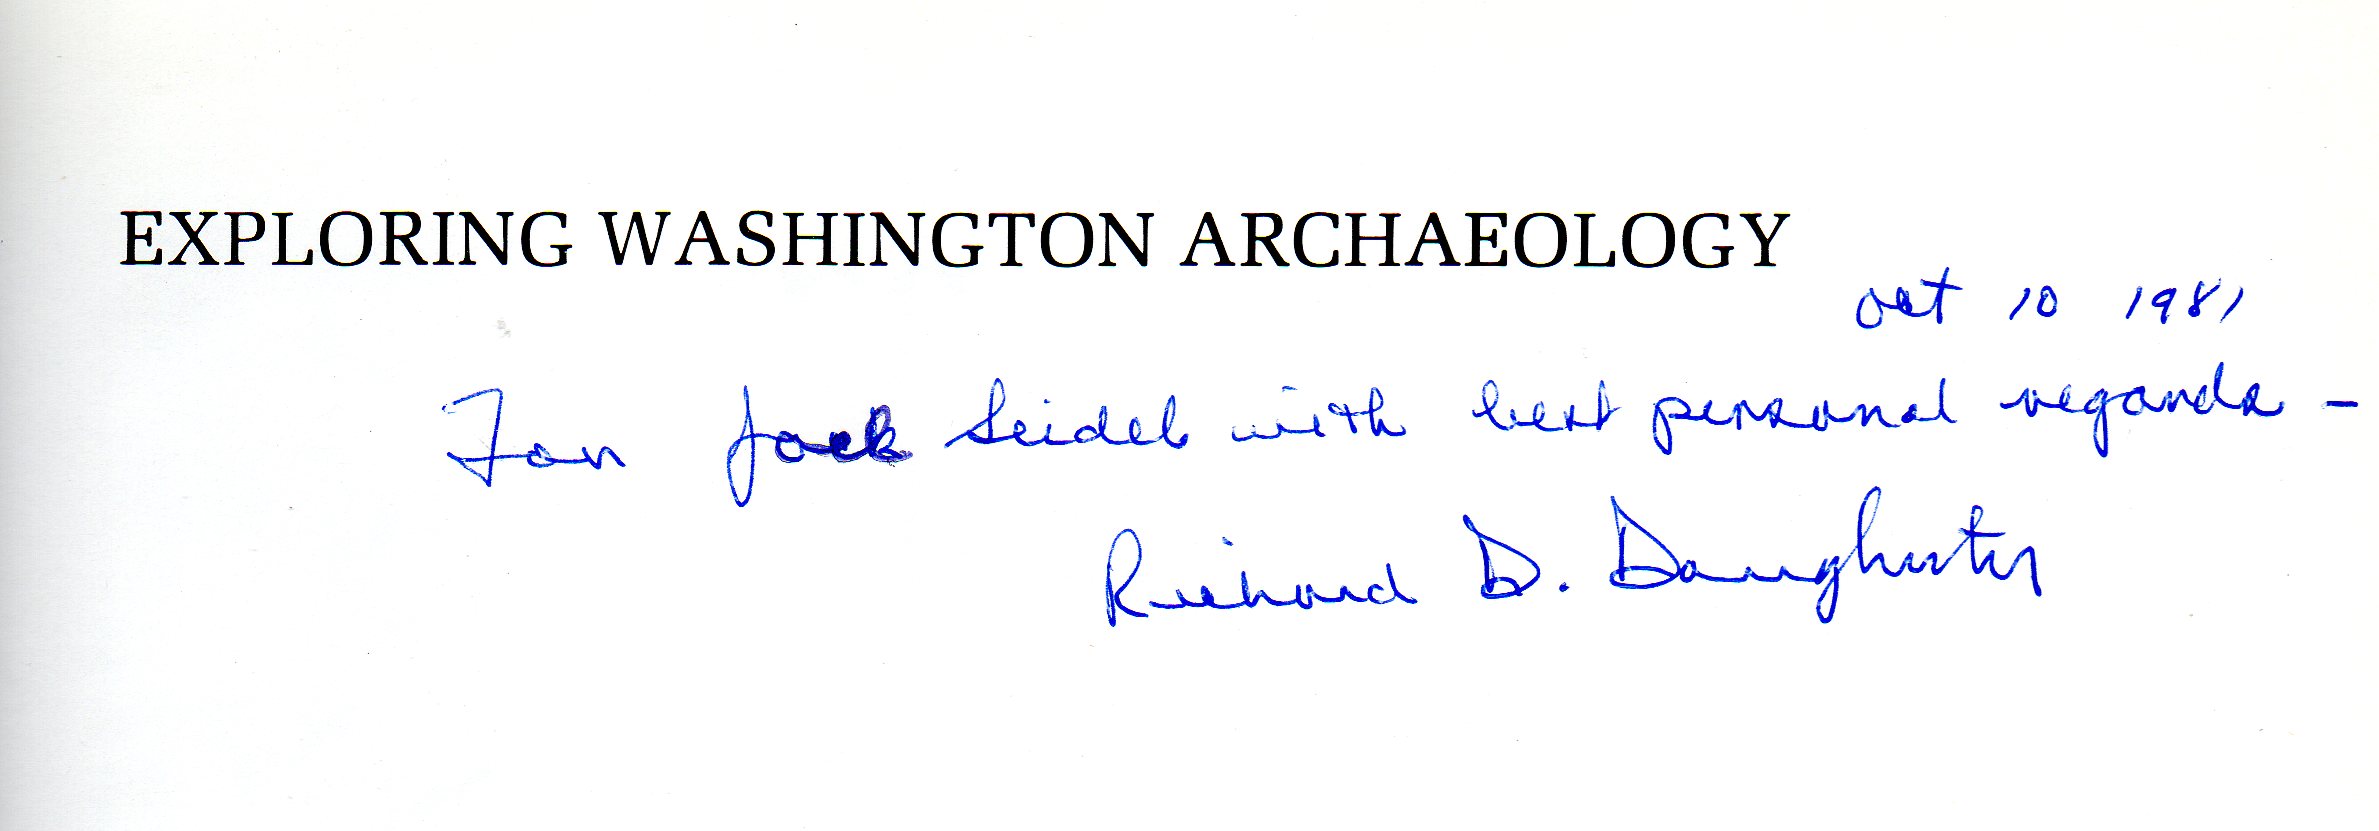 EXPLORING WASHINGTON ARCHAEOLOGY
Oct 10 1981
For Jack Seidel with best personal regards –
Richard D. Daugherty